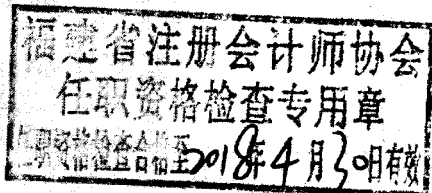 福建省注册会计师协会
任职资格检查专用章
任职资格检查合格至2018年4月30日有效